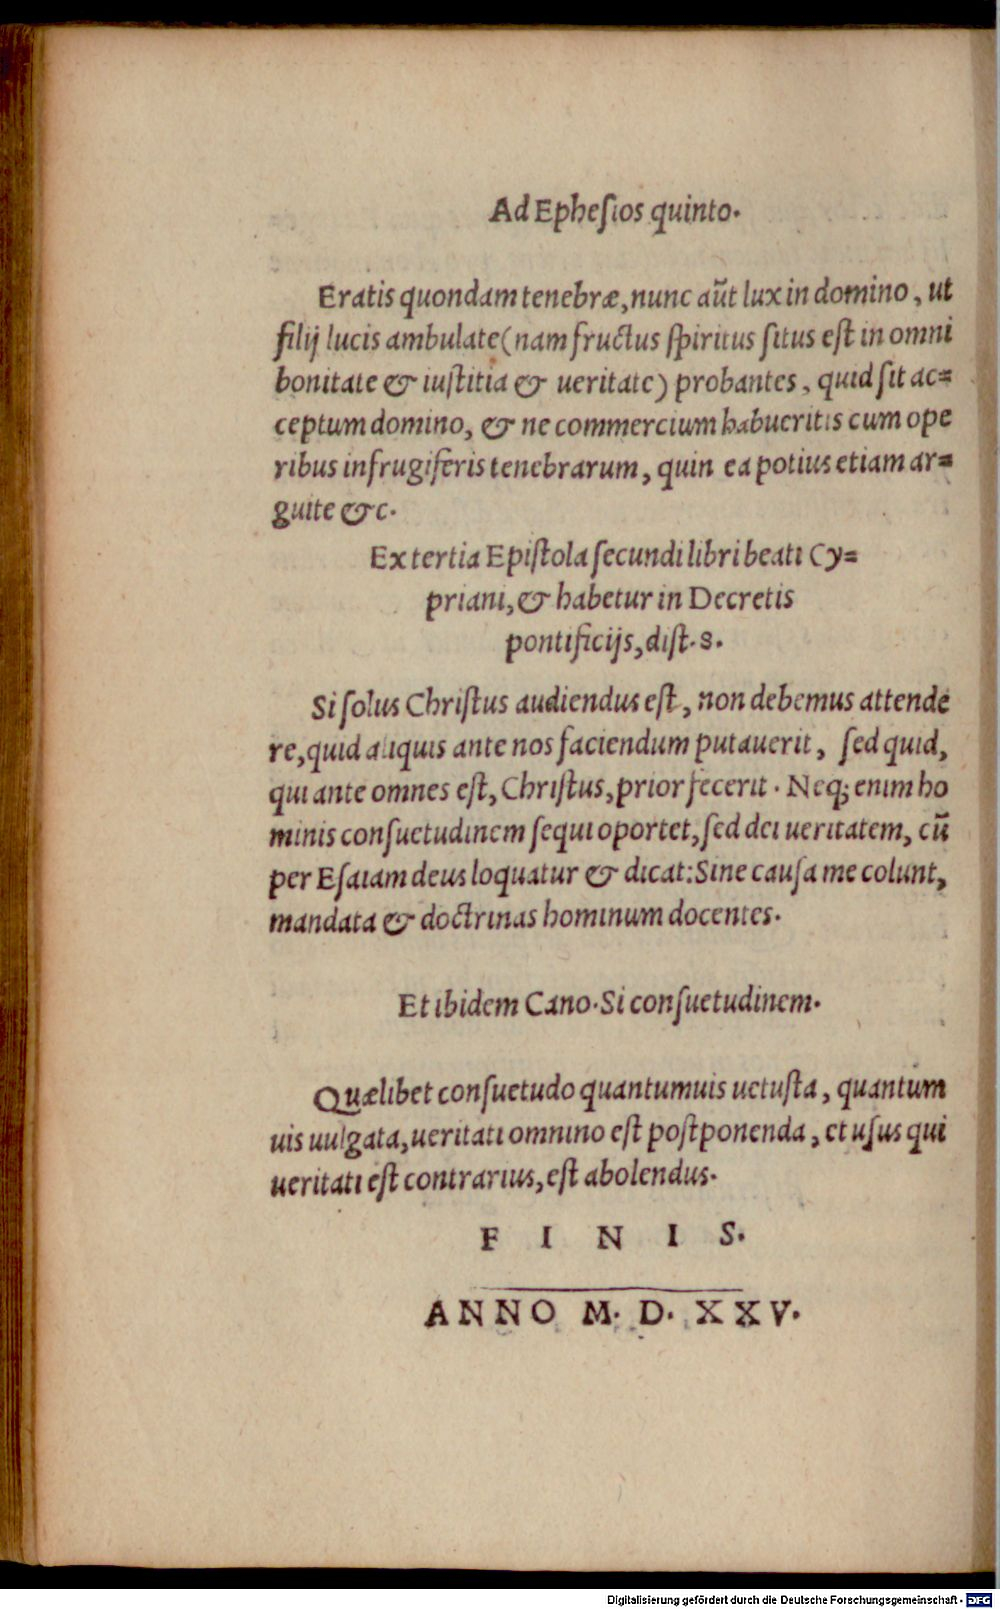 Ad Ephesios quinto.
Eratis quondam tenebræ, nunc aũt lux in domino, ut
filij lucis ambulate (nam fructus spiritus situs est in omni
bonitate & iustitia & ueritate) probantes, quid sit ac=
ceptum domino, & ne commercium habueritis cum ope
ribus infrugiferis tenebrarum, quin ea potius etiam ar=
guite &c.
Ex tertia Epistola secundi libri beati Cy=
priani, & habetur in Decretis
pontificijs, dist. 8.
Si solus Christus audiendus est, non debemus attende
re, quid aliquis ante nos faciendum putauerit, sed quid,
qui ante omnes est, Christus, prior fecerit. Neq; enim ho
minis consuetudinem sequi oportet, sed dei ueritatem, cũ
per Esaiam deus loquatur & dicat: Sine causa me colunt,
mandata & doctrinas hominum docentes.
Et ibidem Cano. Si consuetudinem.
Quælibet consuetudo quantumuis uetusta, quantum
uis uulgata, ueritati omnino est postponenda, et usus qui
ueritati est contrarius, est abolendus.
F I N I S.
ANNO M. D. XXV.
Digitalisierung gefördert durch die Deutsche Forschungsgemeinschaft - DFG